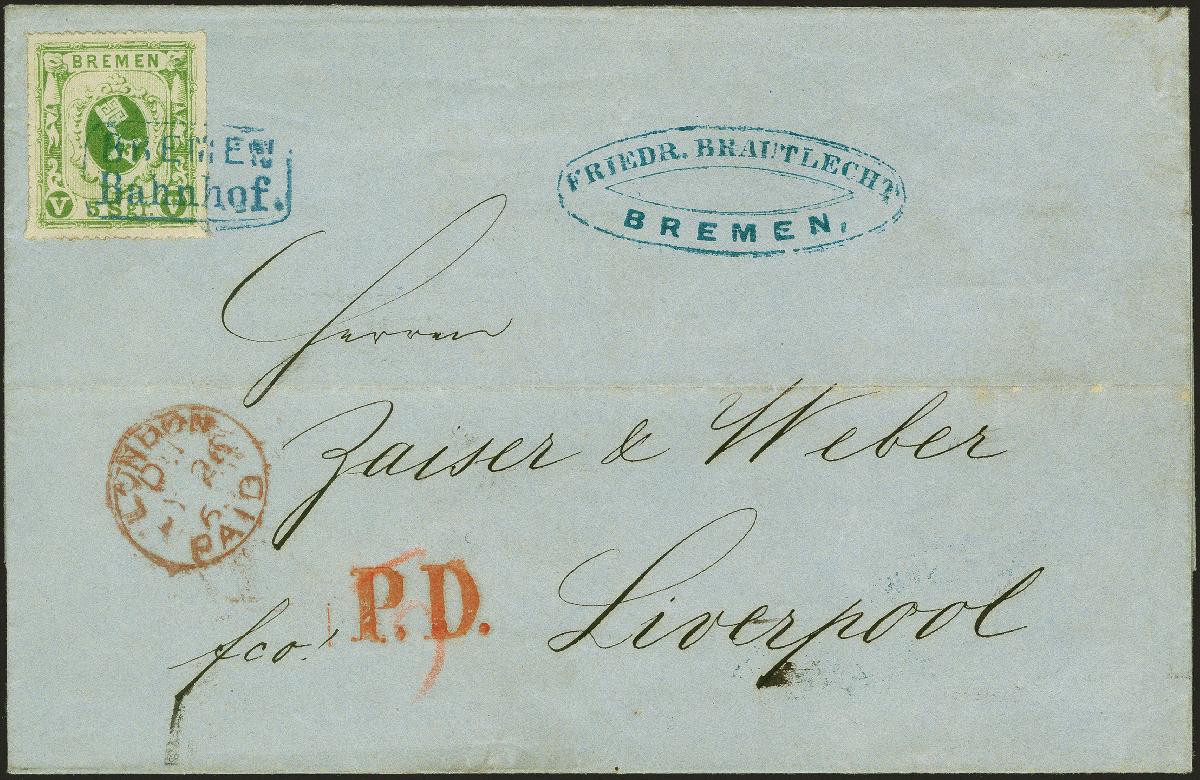 BREMEN
V 5 Sgr. V
BREMEN
Bahnhof.
FRIEDR. BRAUTLECHT
BREMEN,
Herren
Zaiser & Weber
Liverpool
LONDON
PAID
fco.
P.D.